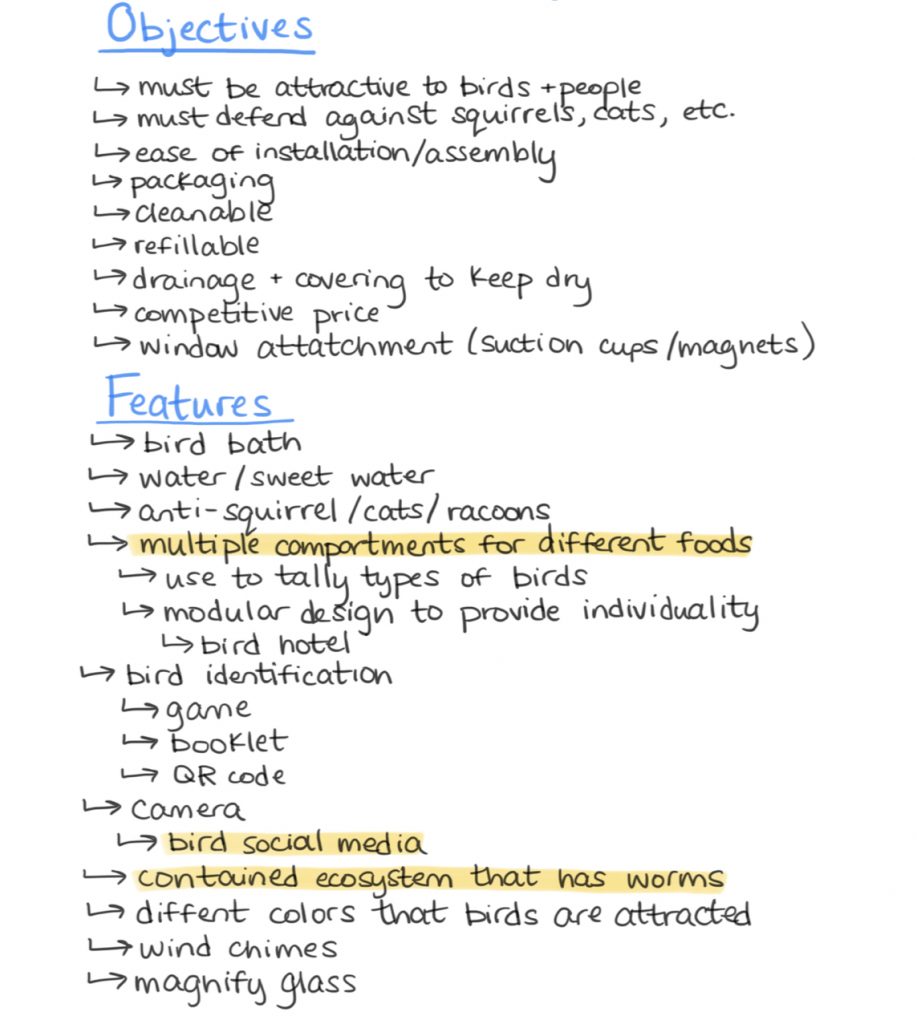 Objectives
↳ must be attractive to birds + people
↳ must defend against squirrels, cats, etc.
↳ ease of installation/assembly
↳ packaging
↳ cleanable
↳ refillable
↳ drainage + covering to keep dry
↳ competitive price
↳ window attatchment (suction cups/magnets)
Features
↳ bird bath
↳ water/sweet water
↳ anti-squirrel/cats/racoons
↳ multiple compartments for different foods
↳ use to tally types of birds
↳ modular design to provide individuality
↳ bird hotel
↳ bird identification
↳ game
↳ booklet
↳ QR code
↳ camera
↳ bird social media
↳ contained ecosystem that has worms
↳ diffent colors that birds are attracted
↳ wind chimes
↳ magnify glass